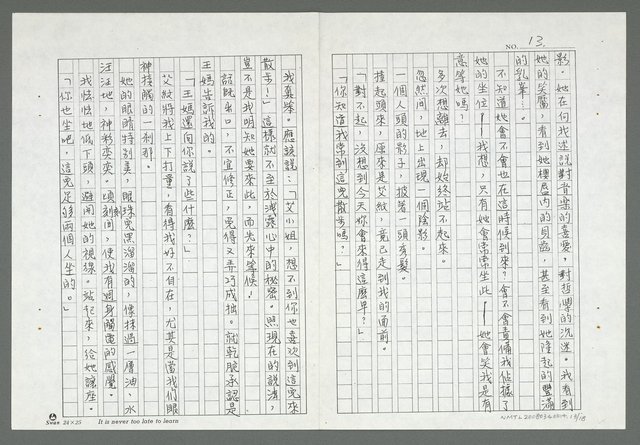 NO. 13.
影。她在向我述說對音樂的喜愛，對哲學的沉迷。我看到
她的笑靨，看到她櫻唇內的貝齒，甚至看到她隆起的豐滿
的乳峯……。
不知道她會不會也在這時候到來？會不會責備我佔據了
她的坐位——我想，只有她會常常坐此——她會笑我是有
意等她嗎？
多次想離去，却始終站不起來。
忽然間，地上出現一個陰影。
一個人頭的影子，披著一頭秀髮。
擡起頭來，原來是艾紋，竟已走到我的面前。
「對不起，沒想到今天妳會來得這麼早？」
「你知道我常到這兒散步嗎？」
我真笨。應該說：「艾小姐，想不到你也喜歡到這兒來
散步！」這樣就不至於洩露心中的秘密。照現在的說法，
豈不是我明知她要來此，而先來等候！
話既出口，不宜修正，免得又弄巧成拙。就乾脆承認是
王媽告訴我的。
「王媽還向你說了些什麼？」
艾紋將我上下打量，看得我好不自在，尤其是當我們眼
神接觸的一剎那。
她的眼睛特別美，眼珠兒黑溜溜的，像抹過一層油，水
汪汪地，神彩奕奕。頃刻間，使我有週身觸電的感覺。
我怯怯地低下頭，避開她的視線。站起來，給她讓座。
「你也坐吧，這兒足够兩個人坐的。」
Swan 24×25 It is never too late to learn